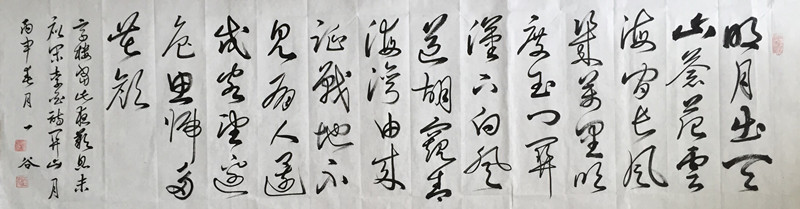 明月出天
山蒼茫雲
海間長風
幾萬里吹
度玉門關
漢下白登
道胡窺青
海灣由來
征戰地不
見有人還
戍客望邊
色思歸多
苦顏
高樓當此夜歎息未
應閑李白詩關山月
丙申春月一谷